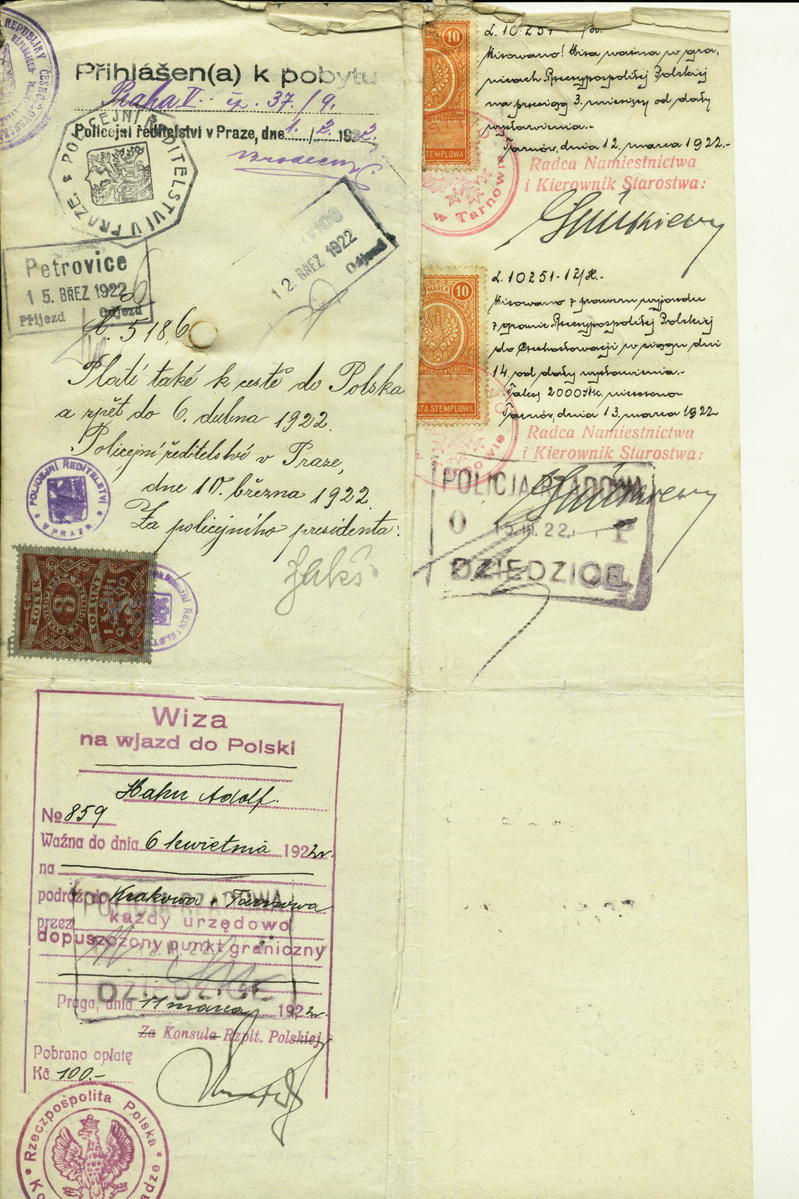 Přihlášen(a) k pobytu
Praha II. čp. 37/9.
Policejní ředitelství v Praze, dne 1. / 2. 1922
POLICEJNÍ ŘEDITELSTVÍ V PRAZE.
12. BŘEZ 1922
Odjezd
Petrovice
15. BŘEZ 1922
Příjezd Odjezd
č. 518,6
Platí také k cestě do Polska
a zpět do 6. dubna 1922.
Policejní ředitelství v Praze,
dne 10. března 1922.
Za policejního presidenta:
POLICEJNÍ ŘEDITELSTVÍ V PRAZE
KOLEK
3
KORUNY
Wiza
na wjazd do Polski
Hahn Adolf.
№ 859
Ważna do dnia 6 kwietnia 1922r.
na
podróż do Krakowa i Tarnowa
przez każdy urzędowo
dopuszczony punkt graniczny
POLICJA RZĄDOWA
DZIEDZICE
Praga, dnia 11 marca 1922r.
Za Konsula Rzplt. Polskiej
Pobrano opłatę
Kč 100.-
Rzeczpospolita Polska
10
STEMPLOWA
L. 10251
Wizowano! Wiza ważna w gra-
nicach Rzeczypospolitej Polskiej
na przeciąg 3. miesięcy od daty
wystawienia.-
Tarnów, dnia 12. marca 1922.-
Radca Namiestnictwa
i Kierownik Starostwa:
w Tarnowie
10
OPŁATA STEMPLOWA
L. 10251-12/H.
Wizowano z prawem wyjazdu
z granic Rzeczypospolitej Polskiej
do Czechosłowacji w ciągu dni
14 od daty wystawienia.-
Taksę 2000 Mk. uiszczono
Tarnów, dnia 13. marca 1922
Radca Namiestnictwa
i Kierownik Starostwa:
POLICJA RZĄDOWA
O 15.III.22. P
DZIEDZICE